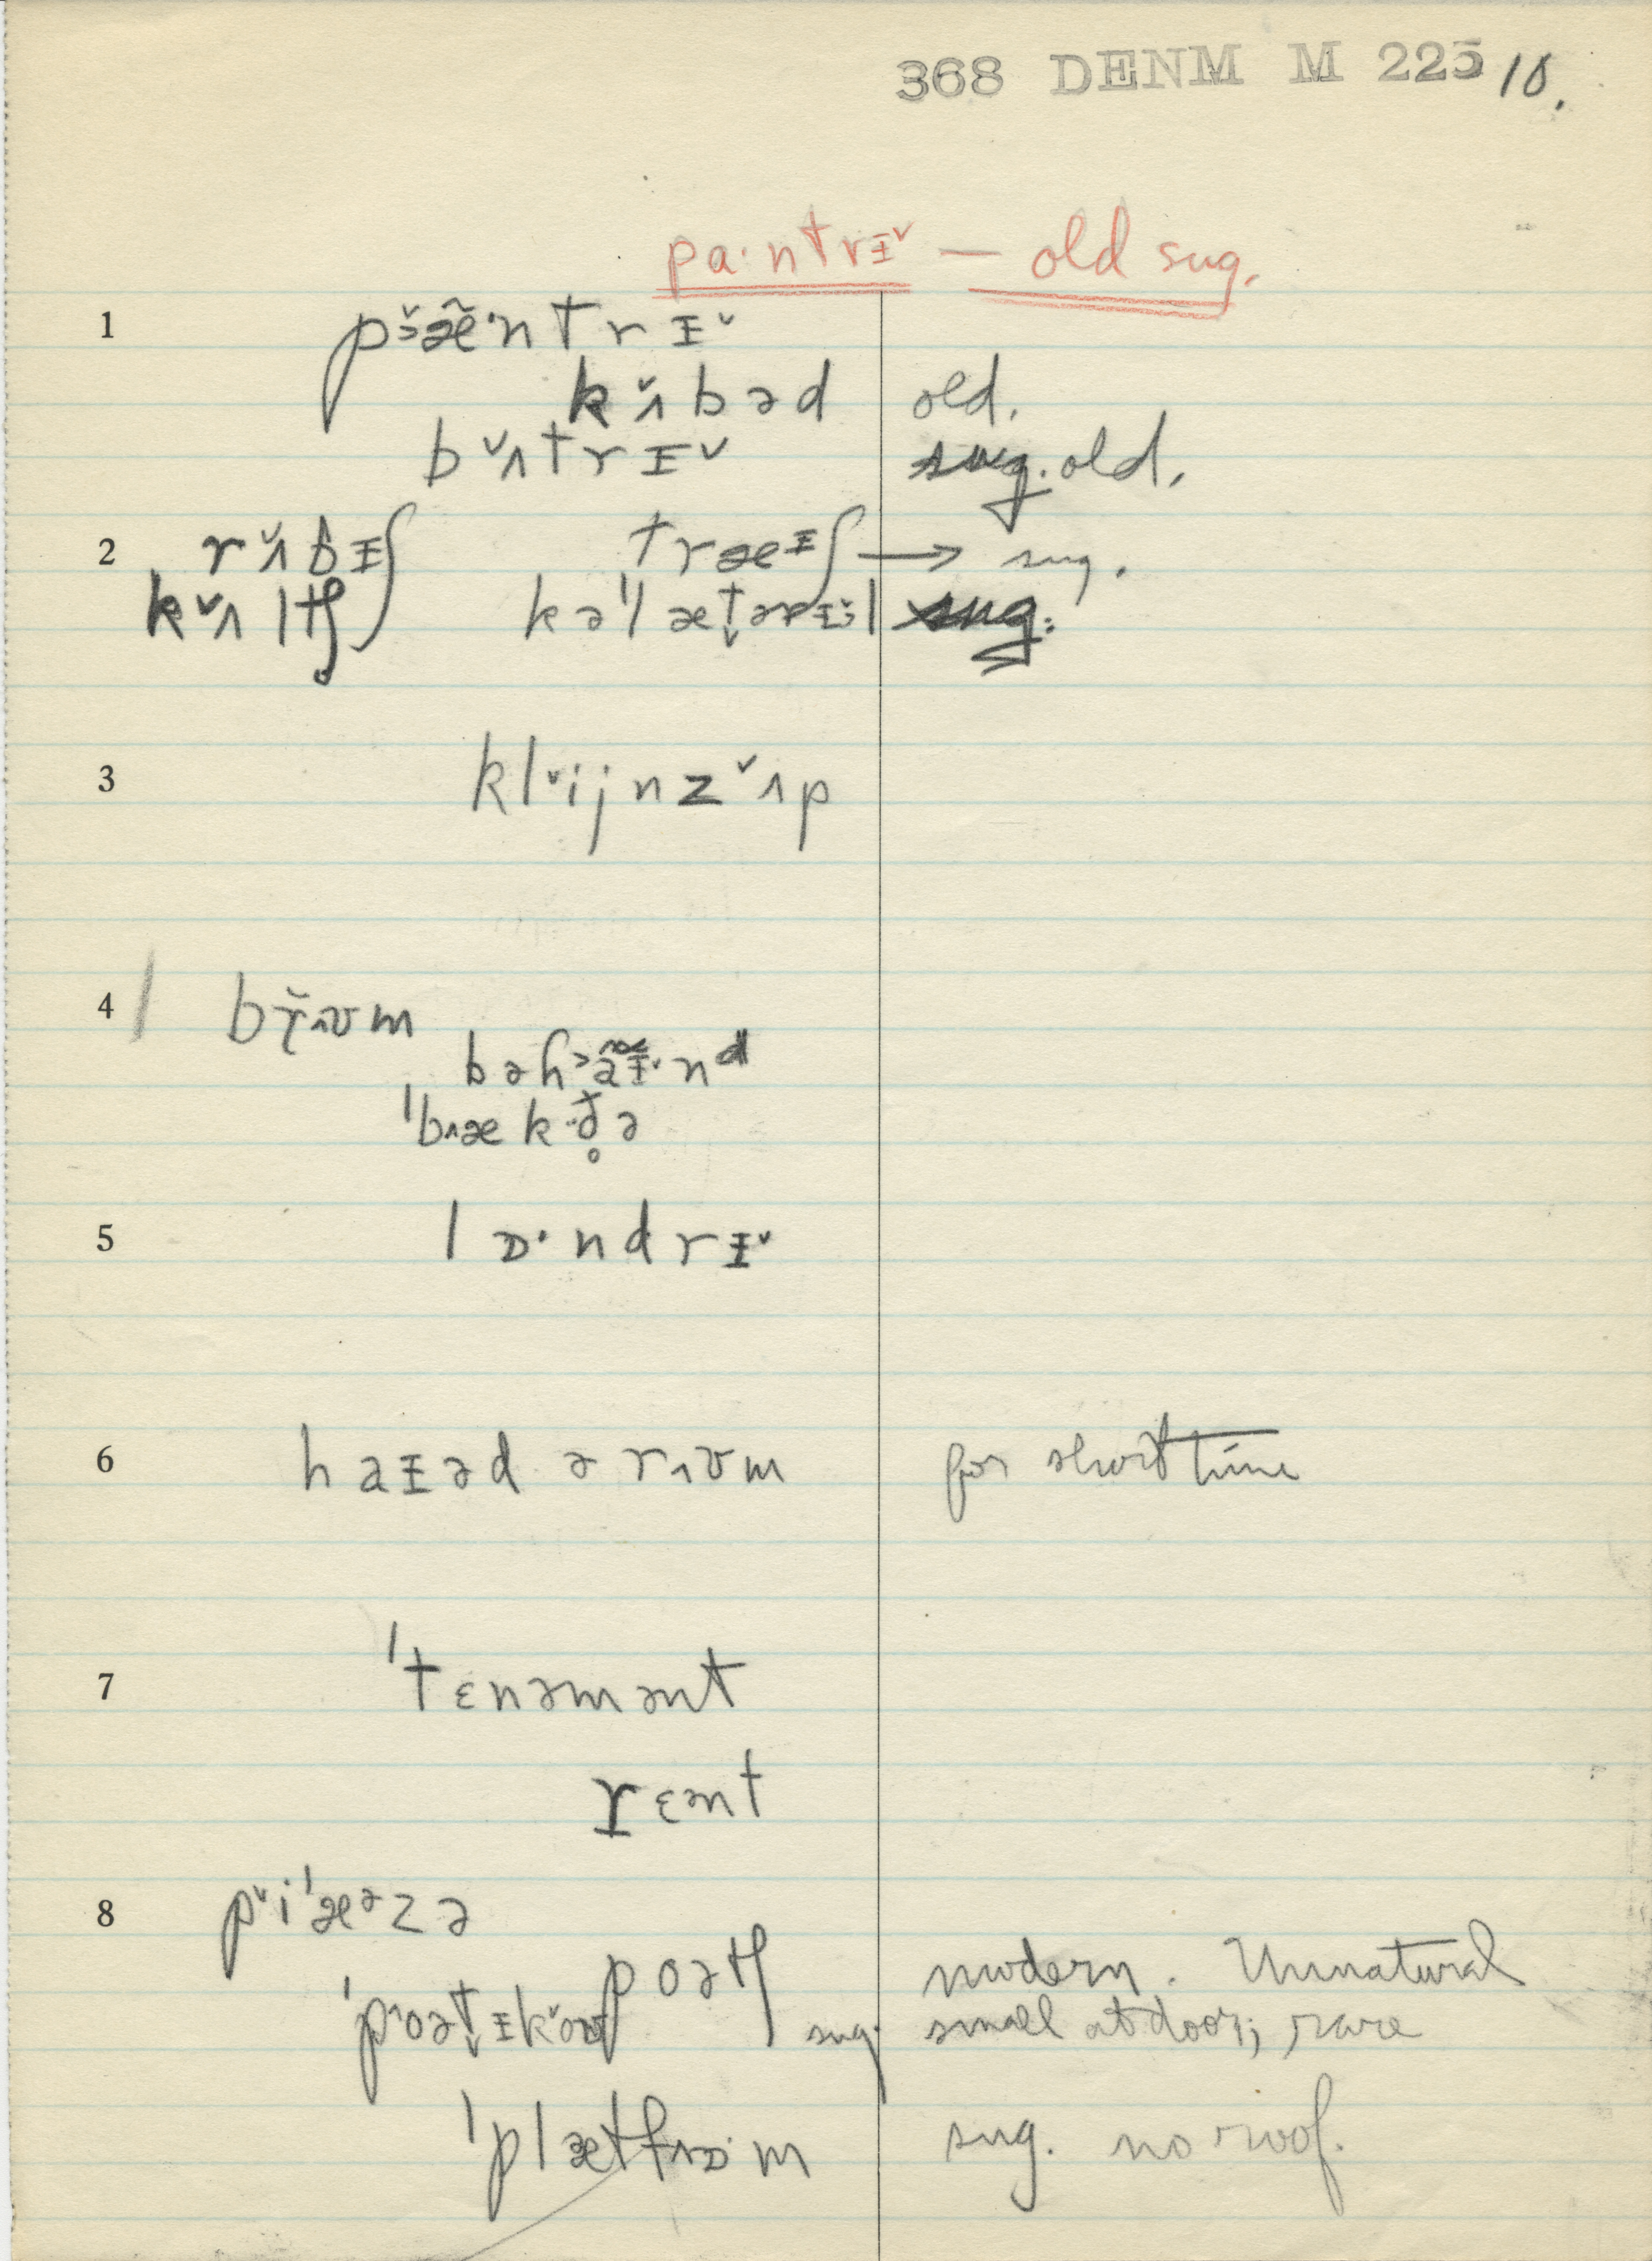 368 DENM M 225 10.
pa·ntrɪ˅ — old sug.
1 p˅ɜæ̃·ntrɪ˅
k˅ʌbəd old.
b˅ʌtrɪ˅ sug. old.
2 r˅ʌbɪʃ træɪʃ → sug.
k˅ʌltʃ kəˈlætərɪ˅əl sug.
3 kl˅ijnz˅ʌp
4 br˅ʌʊm
bəh˃ãɪ̃˅·nᵈ
ˈb˄æk·d̥ə
5 lɒ·ndrɪ˅
6 haɪəd ə r˄ʊm for short time
7 ˈtɛnəmənt
rɛənt
8 p˅iˈæᵊzə
poətʃ modern. Unnatural
ˈp˄oət̬ɪk˅oʊ sug. small at door; rare
ˈplætf˄ɒ·m sug. no roof.